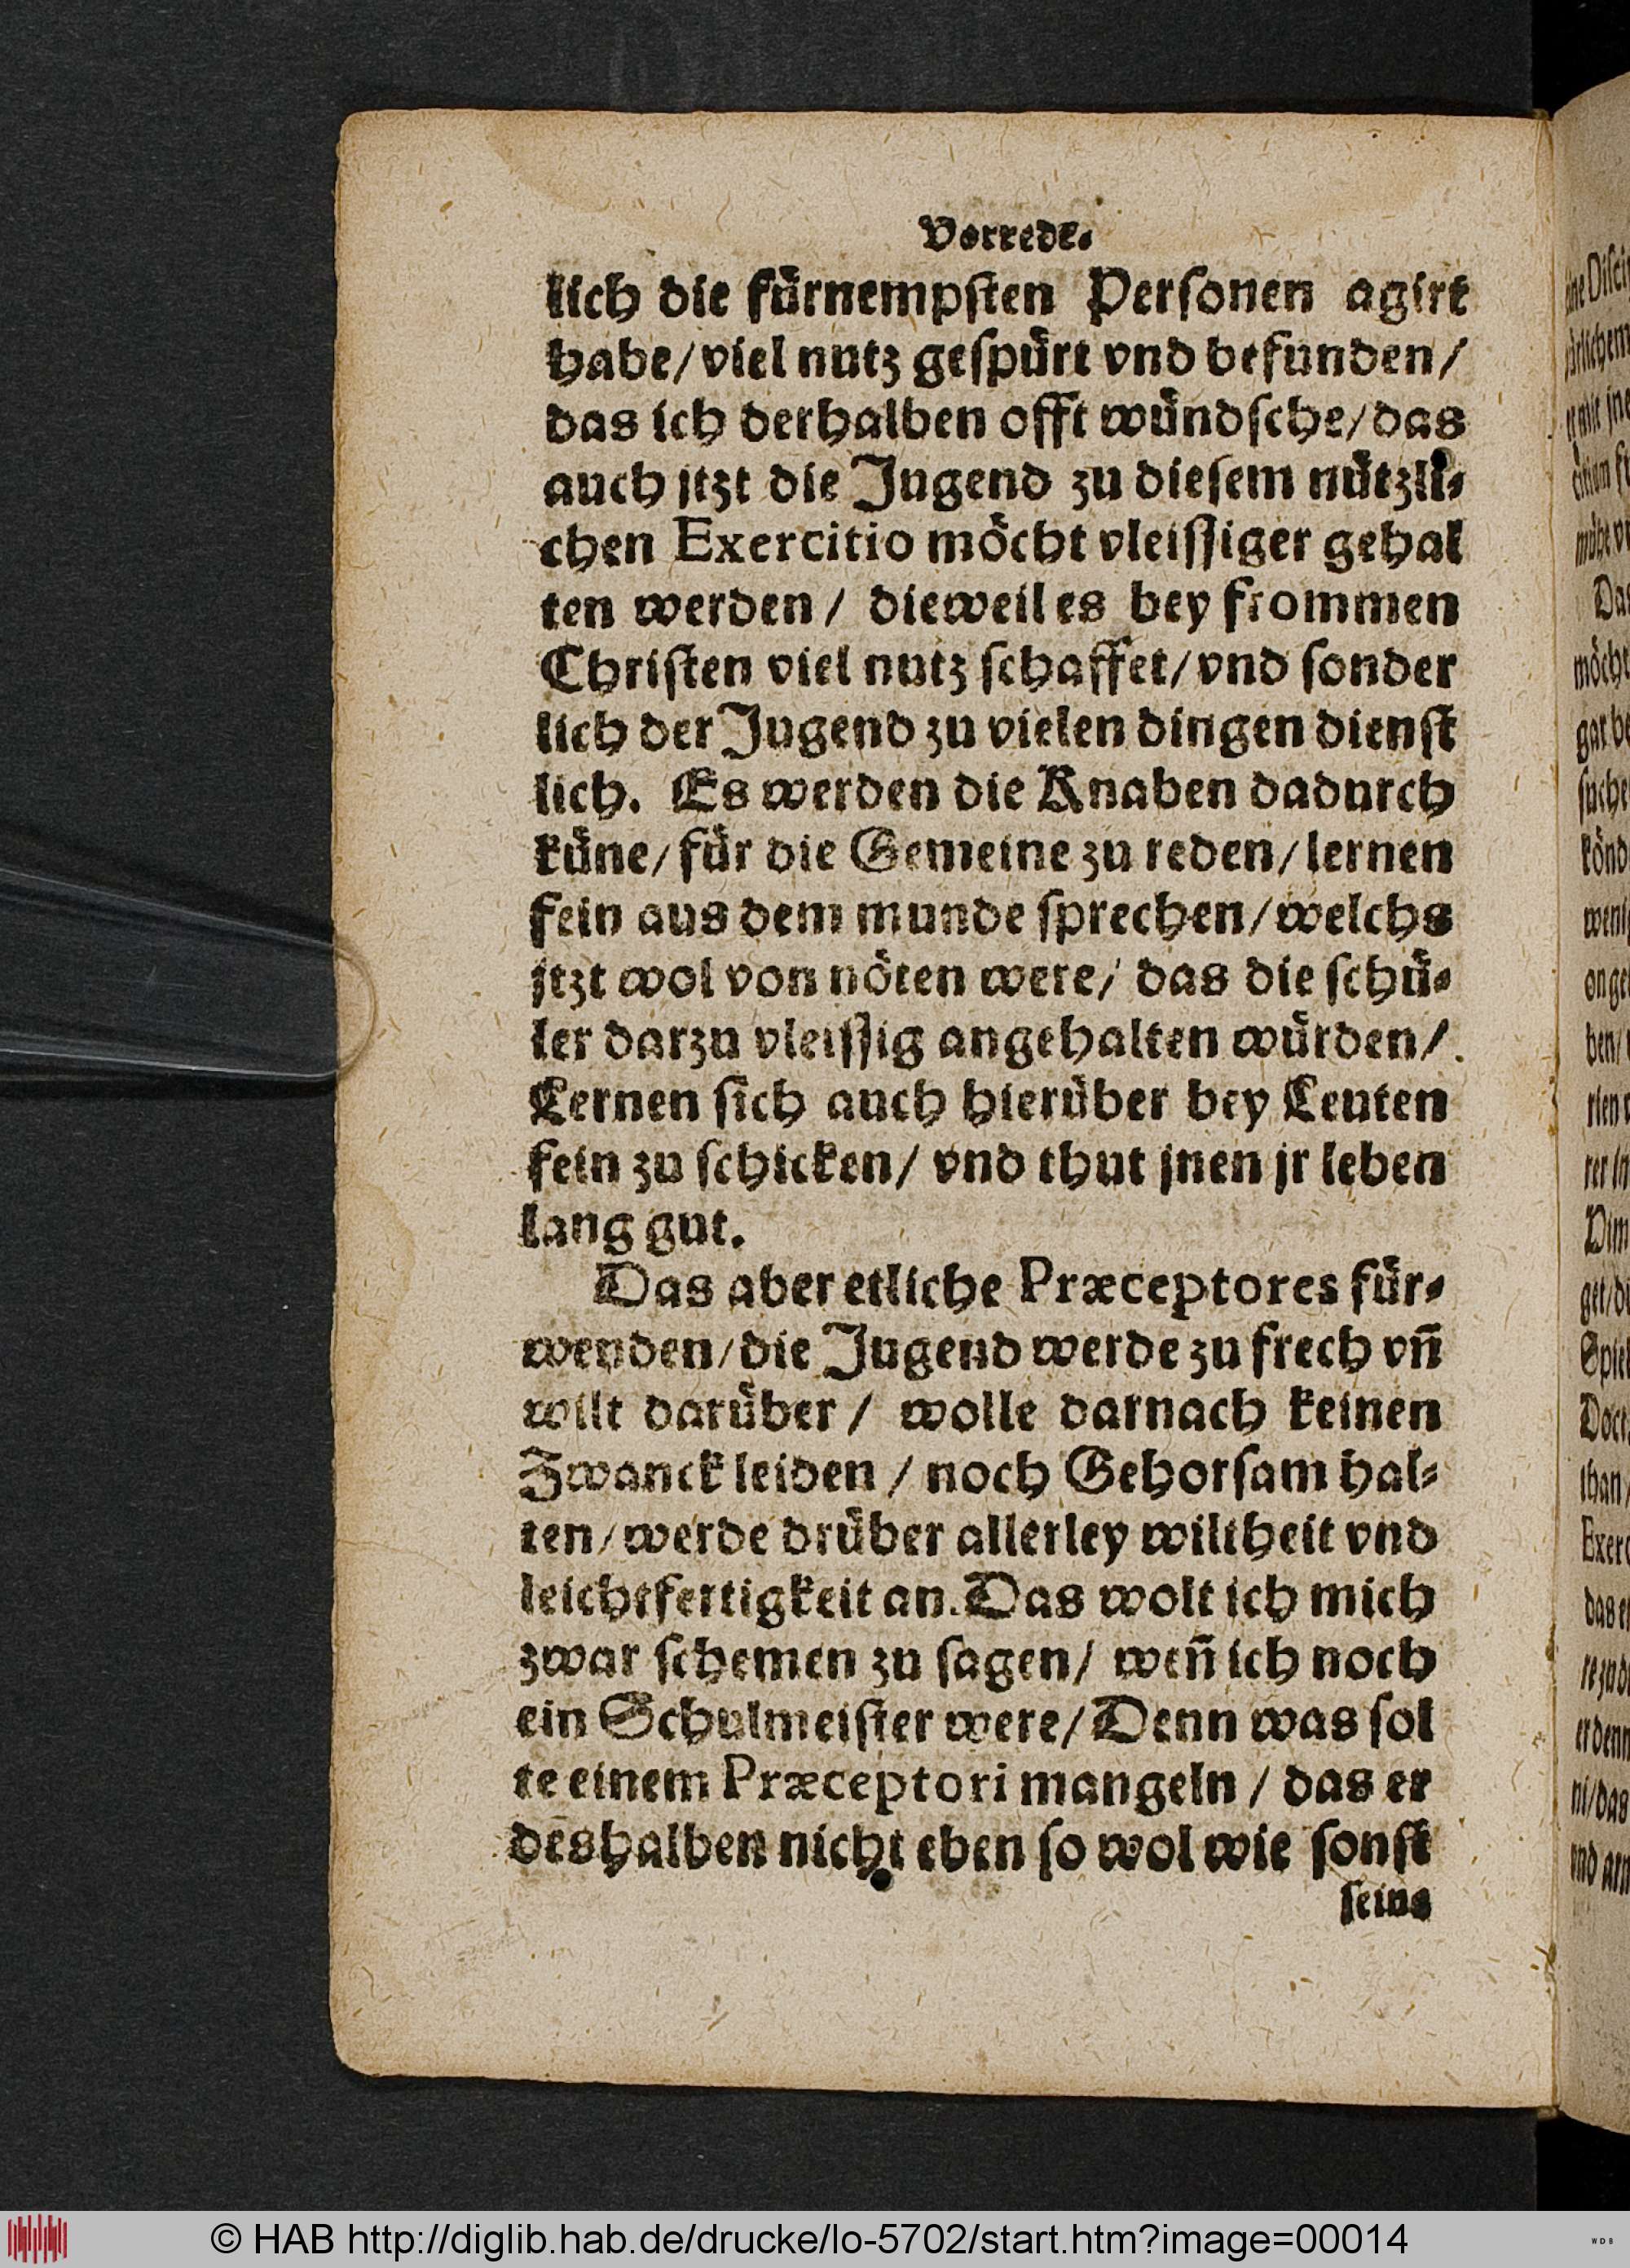 Vorrede.
lich die fürnempſten Perſonen agirt
habe/ viel nutz geſpürt vnd befunden/
das ich derhalben offt wündſche/ das
auch jtzt die Jugend zu dieſem nützli⸗
chen Exercitio möcht vleiſſiger gehal
ten werden/ dieweil es bey frommen
Chriſten viel nutz ſchaffet/ vnd ſonder
lich der Jugend zu vielen dingen dienſt
lich. Es werden die Knaben dadurch
küne/ für die Gemeine zu reden/ lernen
fein aus dem munde ſprechen/ welchs
jtzt wol von nöten were/ das die ſchü⸗
ler darzu vleiſſig angehalten würden/
Lernen ſich auch hierüber bey Leuten
fein zu ſchicken/ vnd thut jnen jr leben
lang gut.
Das aber etliche Præceptores für⸗
wenden/ die Jugend werde zu frech vn̄
wilt darüber/ wolle darnach keinen
Zwanck leiden/ noch Gehorſam hal⸗
ten/ werde drüber allerley wiltheit vnd
leichtfertigkeit an. Das wolt ich mich
zwar ſchemen zu ſagen/ wen̄ ich noch
ein Schulmeiſter were/ Denn was ſol
te einem Præceptori mangeln/ das er
deshalben nicht eben ſo wol wie ſonſt
ſeins
© HAB http://diglib.hab.de/drucke/lo-5702/start.htm?image=00014
WDB